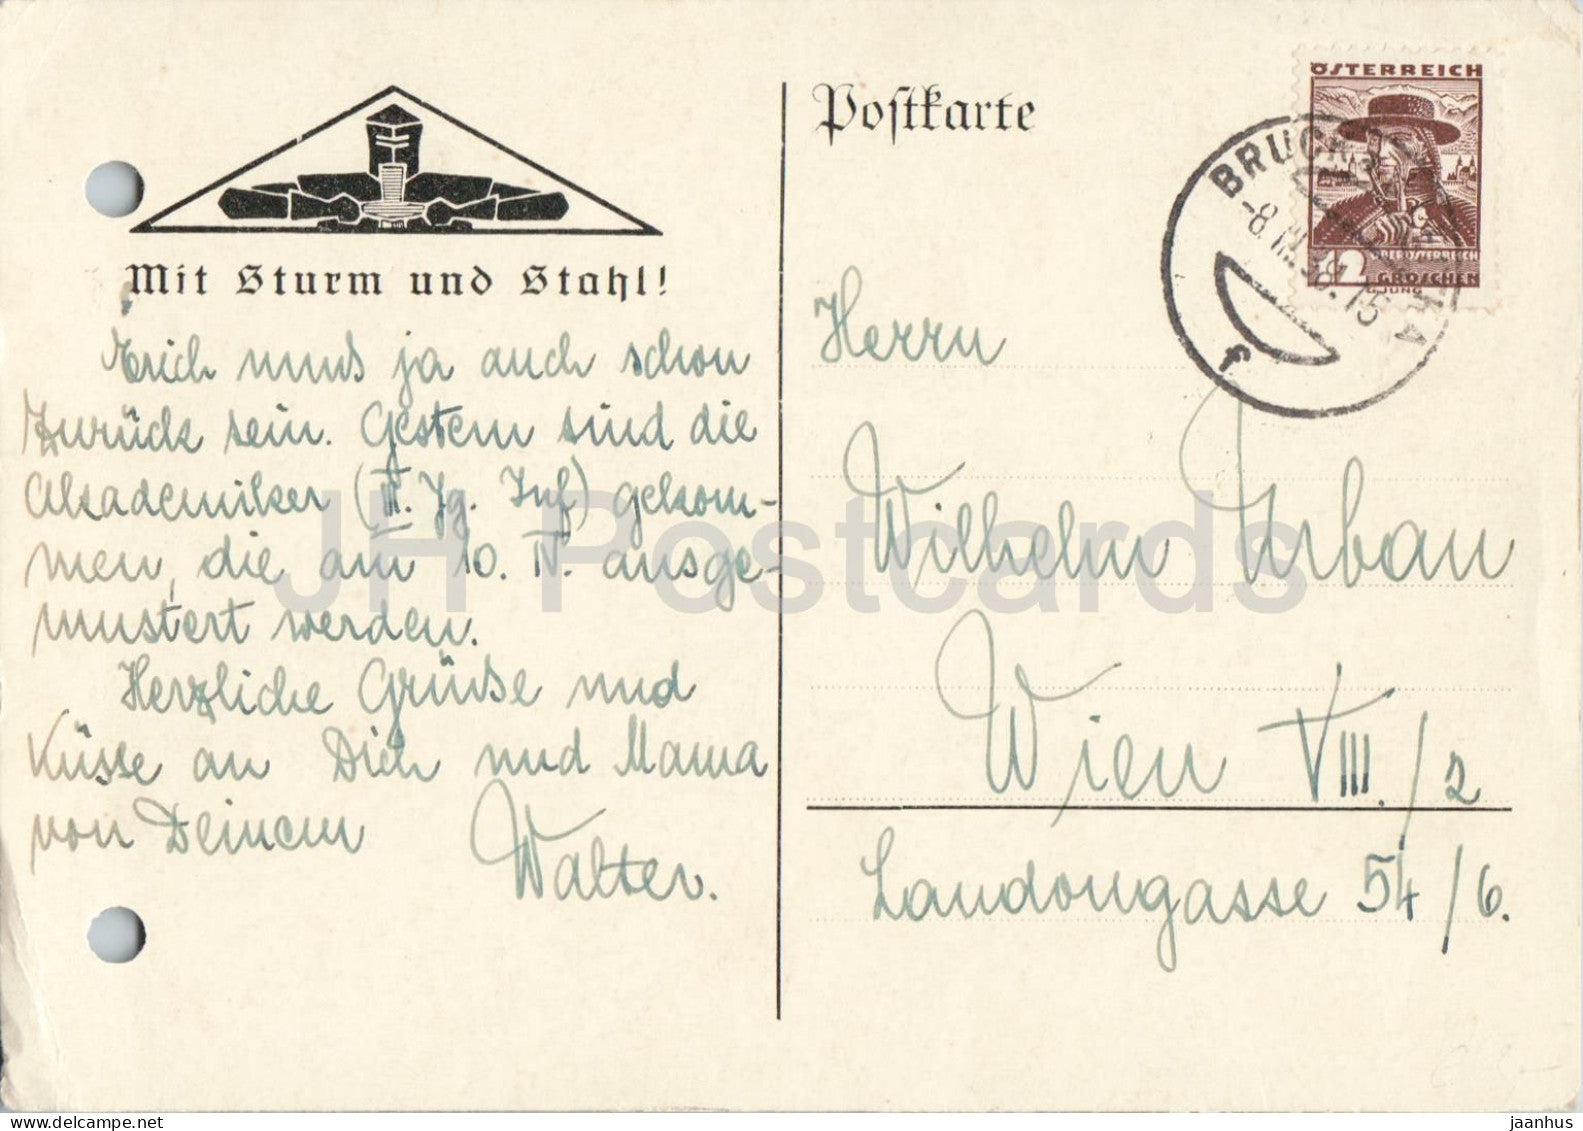 Mit Sturm und Stahl!
Erich muß ja auch schon
zurück sein. Gestern sind die
Akademiker (III. Jg. Inf) gekom-
men, die am 10. IV. ausge-
mustert werden.
Herzliche Grüße und
Küsse an Dich und Mama
von Deinem Walter.
Postkarte
ÖSTERREICH
12 OBERÖSTERREICH
GROSCHEN
G. JUNG
BRUCK
-8.III.38.15
f
Herrn
Wilhelm Urban
Wien VIII./2
Laudongasse 54/6.
JH Postcards
jaanhus
delcampe.net